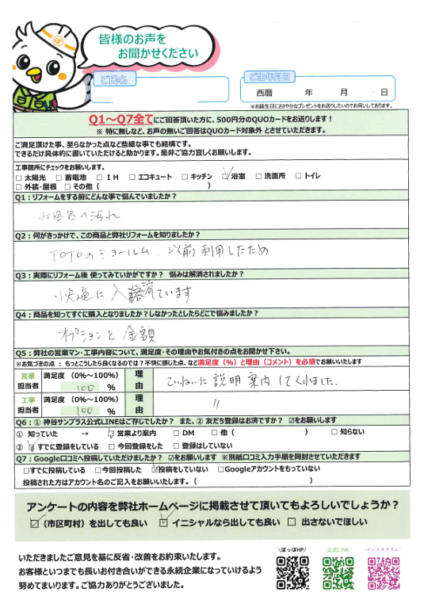 皆様のお声を
お聞かせください
ご氏名
ご生年月日
西暦 年 月 日
※お誕生日にささやかなプレゼントをお送りしたいのでお伺いしております。
Q1～Q7全てにご回答頂いた方に、500円分のQUOカードをお送りします！
※ 特に無しなど、お声の無いご回答はQUOカード対象外 とさせていただきます。
ご満足頂けた事、至らなかった点など些細な事でも結構です。
できるだけ具体的に書いていただけると助かります。是非ご協力宜しくお願いします。
工事箇所にチェックをお願いします。
□ 太陽光 □ 蓄電池 □ ＩＨ □ エコキュート □ キッチン ☑ 浴室 □ 洗面所 □ トイレ
□ 外装・屋根 □ その他（ ）
Q1：リフォームをする前にどんな事で悩んでいましたか？
お風呂の汚れ
Q2：何がきっかけで、この商品と弊社リフォームを知りましたか？
TOTOのショールム 以前利用したため
Q3：実際にリフォーム後 使ってみていかがですか？ 悩みは解消されましたか？
快適に入浴しています
Q4：商品を知ってすぐに購入となりましたか？しなかったとしたらどこで悩みましたか？
オプションと金額
Q5：弊社の営業マン・工事内容について、満足度・その理由やお気付きの点をお聞かせ下さい。
※お気づきの点：もっとこうしたら良くなるのでは？不快に感じた点、など満足度（%）と理由（コメント）を必須でお願いいたします
営業担当者 満足度（0%～100%） 100 % 理由 ていねいに説明案内してくれました.
工事担当者 満足度（0%～100%） 100 % 理由 〃
Q6：① 神谷サンプラス公式LINEはご存じでしたか？ また、② 友だち登録はお済ですか？ ☑をお願いします
① 知っていた → ☑ 営業より案内 □ DM □ 他（ ） □ 知らない
② ☑ すでに登録をしている □ 今回登録をした □ 登録はしていない
Q7：Google口コミへ投稿していただけましたか？ ☑をお願いします ※別紙口コミ入力手順を同封させていただきます
□すでに投稿している □今回投稿した ☑投稿をしていない □Googleアカウントをもっていない
投稿された方はアカウント名のご記入お願いいたします。（ ）
アンケートの内容を弊社ホームページに掲載させて頂いてもよろしいでしょうか？
☑（市区町村）を出しても良い ☑ イニシャルなら出しても良い □ 出さないでほしい
いただきましたご意見を基に反省・改善をお約束いたします。
お客様といつまでも長いお付き合いができる永続企業になっていけるよう
努めてまいります。ご協力ありがとうございました。
公式LINE
インスタグラム